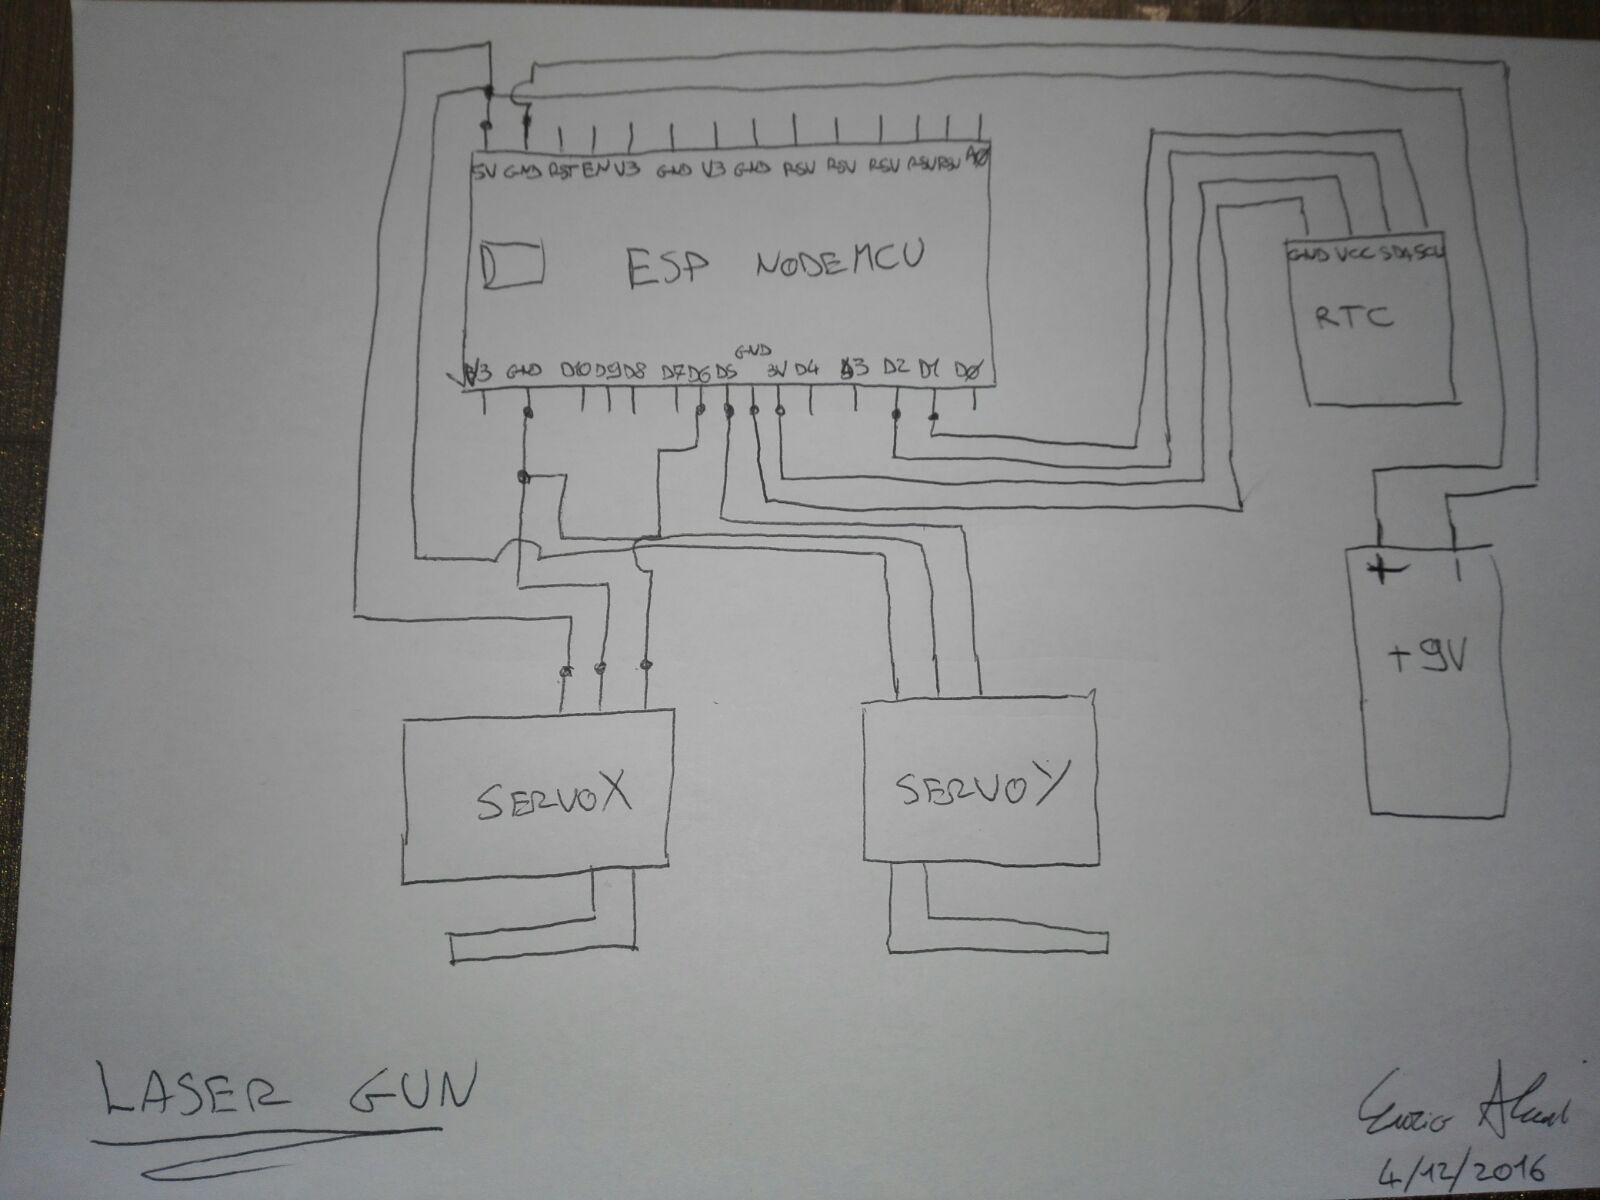 5V GND RST EN V3 GND V3 GND RSV RSV RSV RSV RSV A0
ESP NODEMCU
GND
V3 GND D10 D9 D8 D7 D6 D5 3V D4 D3 D2 D1 D0
GND VCC SDA SCL
RTC
+
+9V
SERVOX
SERVOY
LASER GUN
4/12/2016